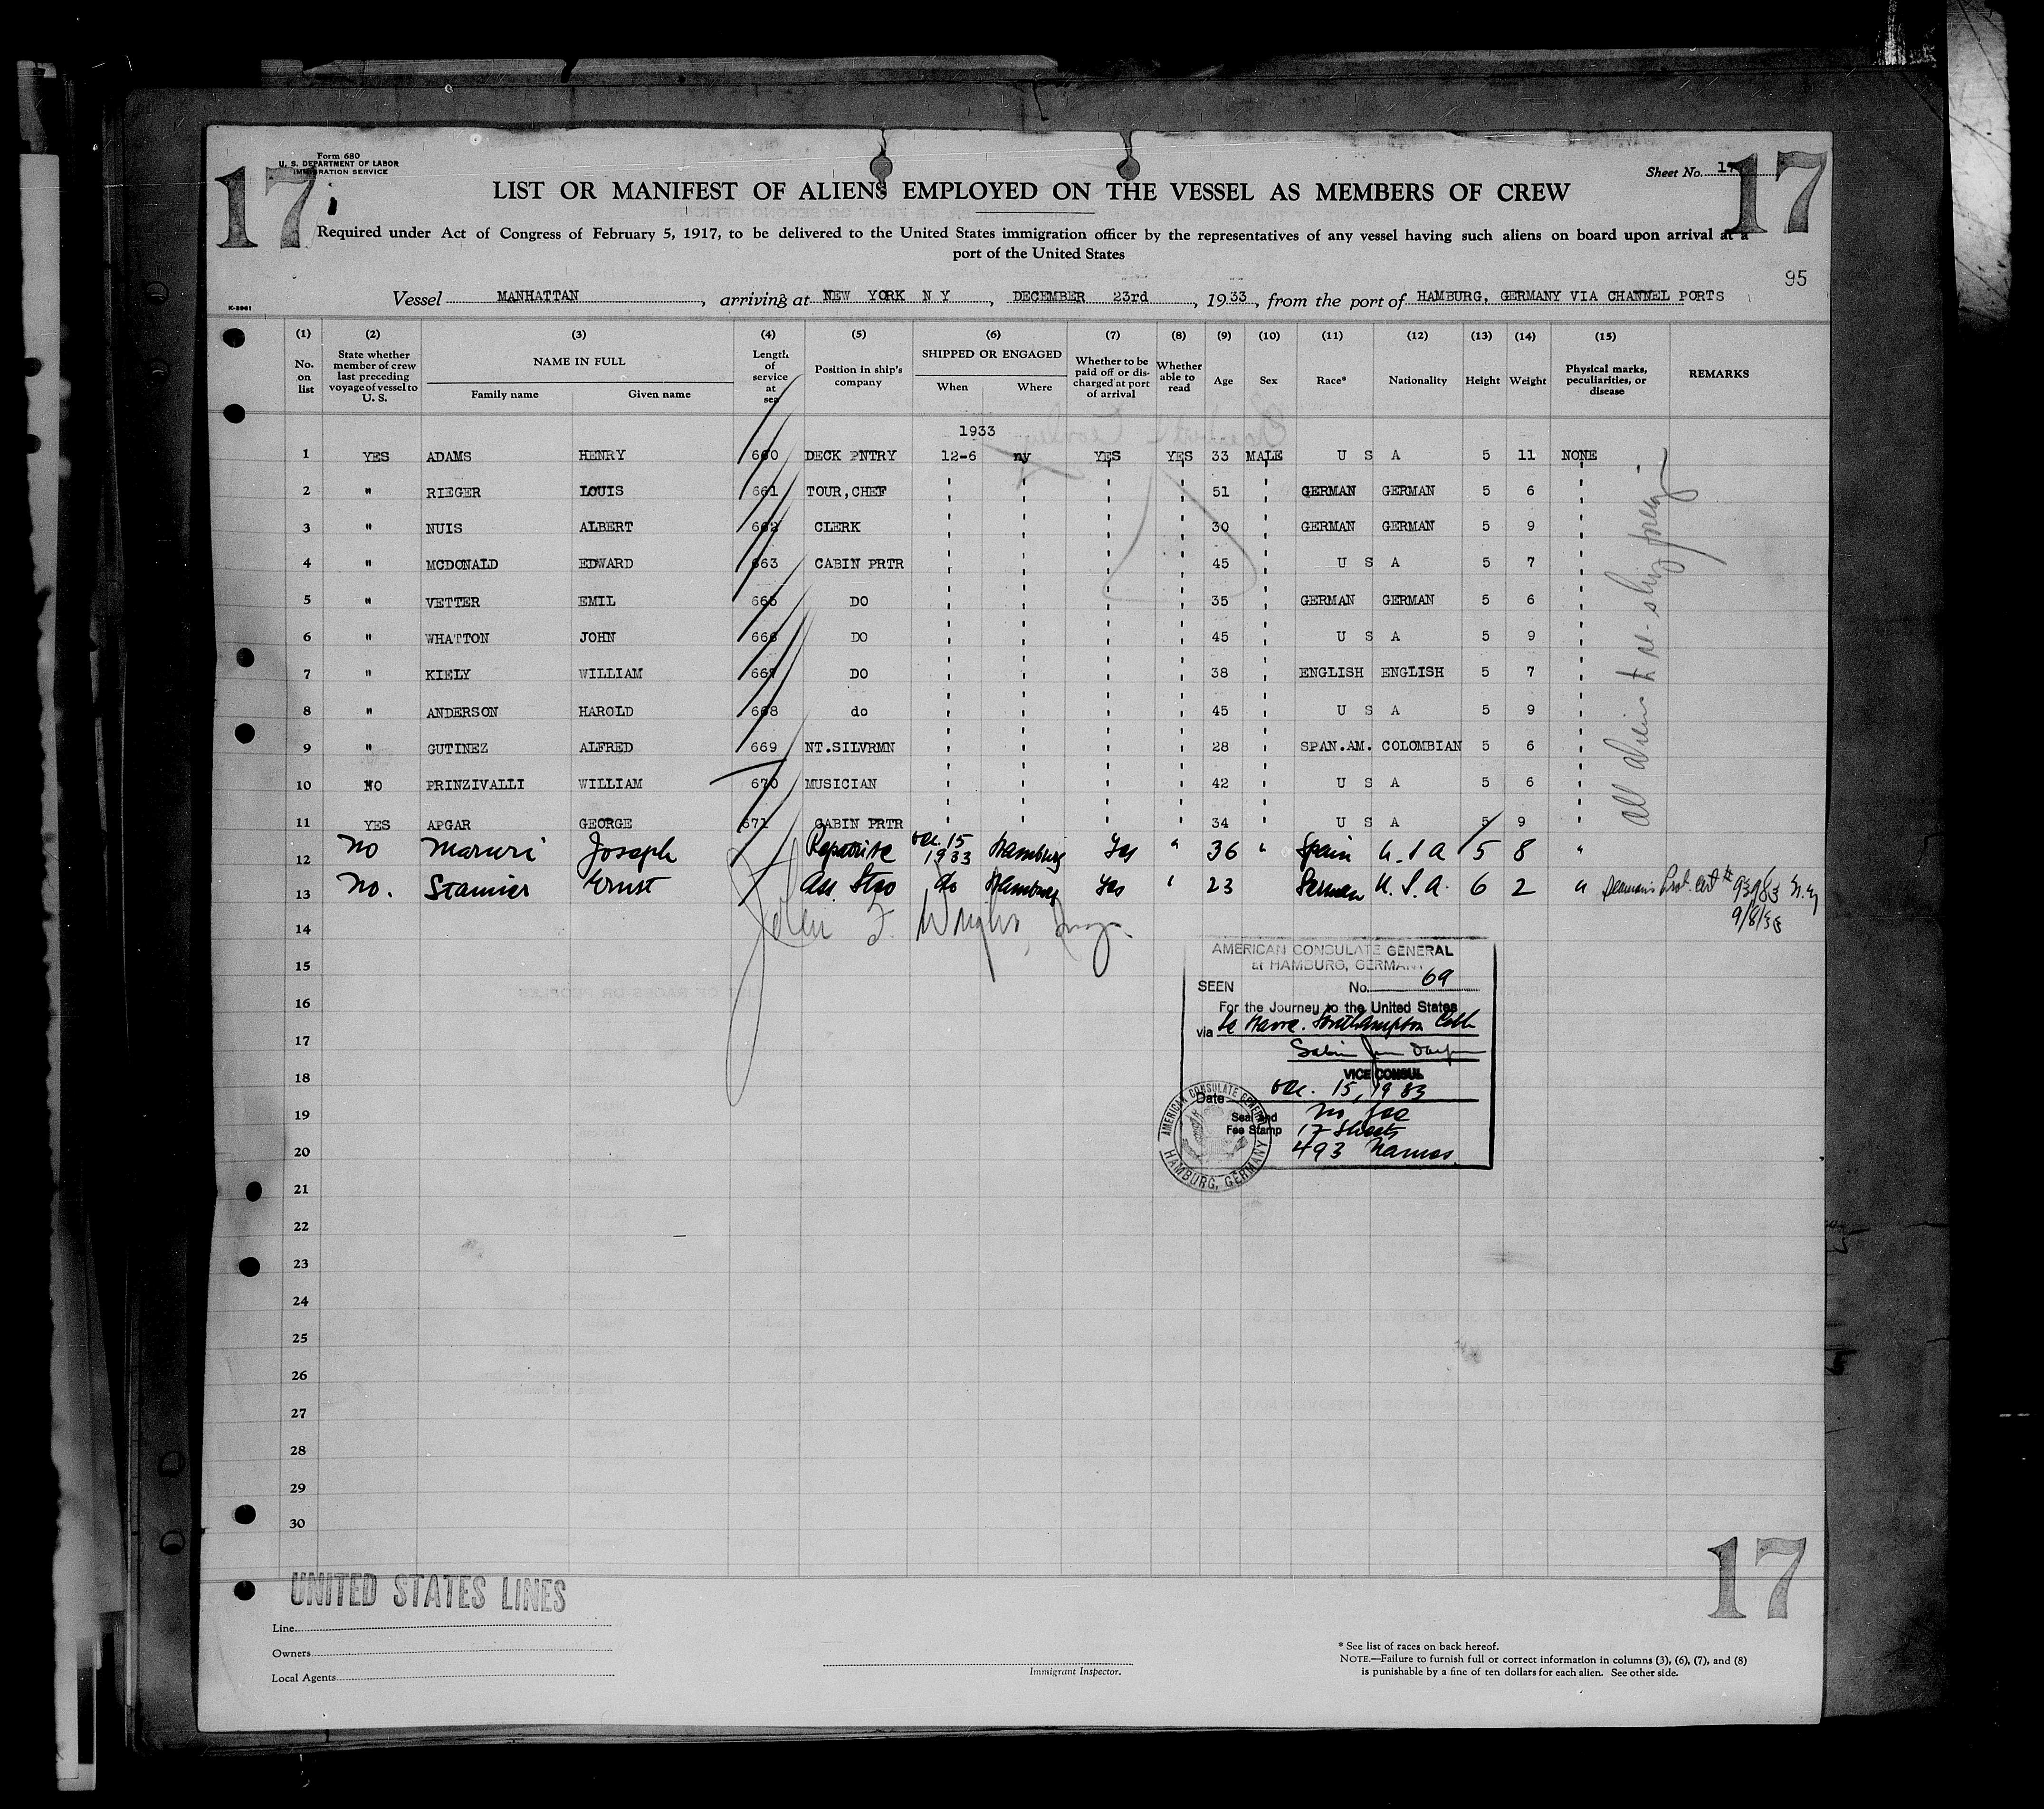 Form 680
U. S. DEPARTMENT OF LABOR
IMMIGRATION SERVICE
17
Sheet No. 17
17
LIST OR MANIFEST OF ALIENS EMPLOYED ON THE VESSEL AS MEMBERS OF CREW
Required under Act of Congress of February 5, 1917, to be delivered to the United States immigration officer by the representatives of any vessel having such aliens on board upon arrival at a
port of the United States
95
Vessel MANHATTAN, arriving at NEW YORK N Y, DECEMBER 23rd, 1933, from the port of HAMBURG, GERMANY VIA CHANNEL PORTS
(1) (2) (3) (4) (5) (6) (7) (8) (9) (10) (11) (12) (13) (14) (15)
No. on list
State whether member of crew last preceding voyage of vessel to U. S.
NAME IN FULL
Family name Given name
Length of service at sea
Position in ship's company
SHIPPED OR ENGAGED
When Where
Whether to be paid off or discharged at port of arrival
Whether able to read
Age Sex Race* Nationality Height Weight
Physical marks, peculiarities, or disease
REMARKS
1933
1 YES ADAMS HENRY 660 DECK PNTRY 12-6 ny YES YES 33 MALE U S A 5 11 NONE
2 " RIEGER LOUIS 661 TOUR,CHEF 51 GERMAN GERMAN 5 6
3 " NUIS ALBERT 662 CLERK 30 GERMAN GERMAN 5 9
4 " MCDONALD EDWARD 663 CABIN PRTR 45 U S A 5 7
5 " VETTER EMIL 665 DO 35 GERMAN GERMAN 5 6
6 " WHATTON JOHN 666 DO 45 U S A 5 9
7 " KIELY WILLIAM 667 DO 38 ENGLISH ENGLISH 5 7
8 " ANDERSON HAROLD 668 do 45 U S A 5 9
9 " GUTINEZ ALFRED 669 NT.SILVRMN 28 SPAN.AM. COLOMBIAN 5 6
10 NO PRINZIVALLI WILLIAM 670 MUSICIAN 42 U S A 5 6
11 YES APGAR GEORGE 671 CABIN PRTR 34 U S A 5 9
12 No Maruri Joseph Repatriate Dec. 15 1933 Hamburg Yes " 36 " Spain U.S.A 5 8 "
13 No. Stamier Ernst Ass. Stwo do Hamburg Yes " 23 German U.S.A. 6 2 " Seaman's Prot. Cert # 93983 N.Y
9/8/33
All Aliens to re-ship foreign
14
John F. Wright, Insp.
15
16
17
18
19
20
21
22
23
24
25
26
27
28
29
30
AMERICAN CONSULATE GENERAL
at HAMBURG, GERMANY
SEEN No. 69
For the Journey to the United States
via Le Havre. Southampton Cobh
VICE CONSUL
Date Dec. 15, 1933
Seal and
Fee Stamp
No fee
17 sheets
493 Names
AMERICAN CONSULATE GENERAL
HAMBURG, GERMANY
17
UNITED STATES LINES
Line
Owners
Local Agents
Immigrant Inspector.
* See list of races on back hereof.
NOTE.—Failure to furnish full or correct information in columns (3), (6), (7), and (8)
is punishable by a fine of ten dollars for each alien. See other side.
K-3961